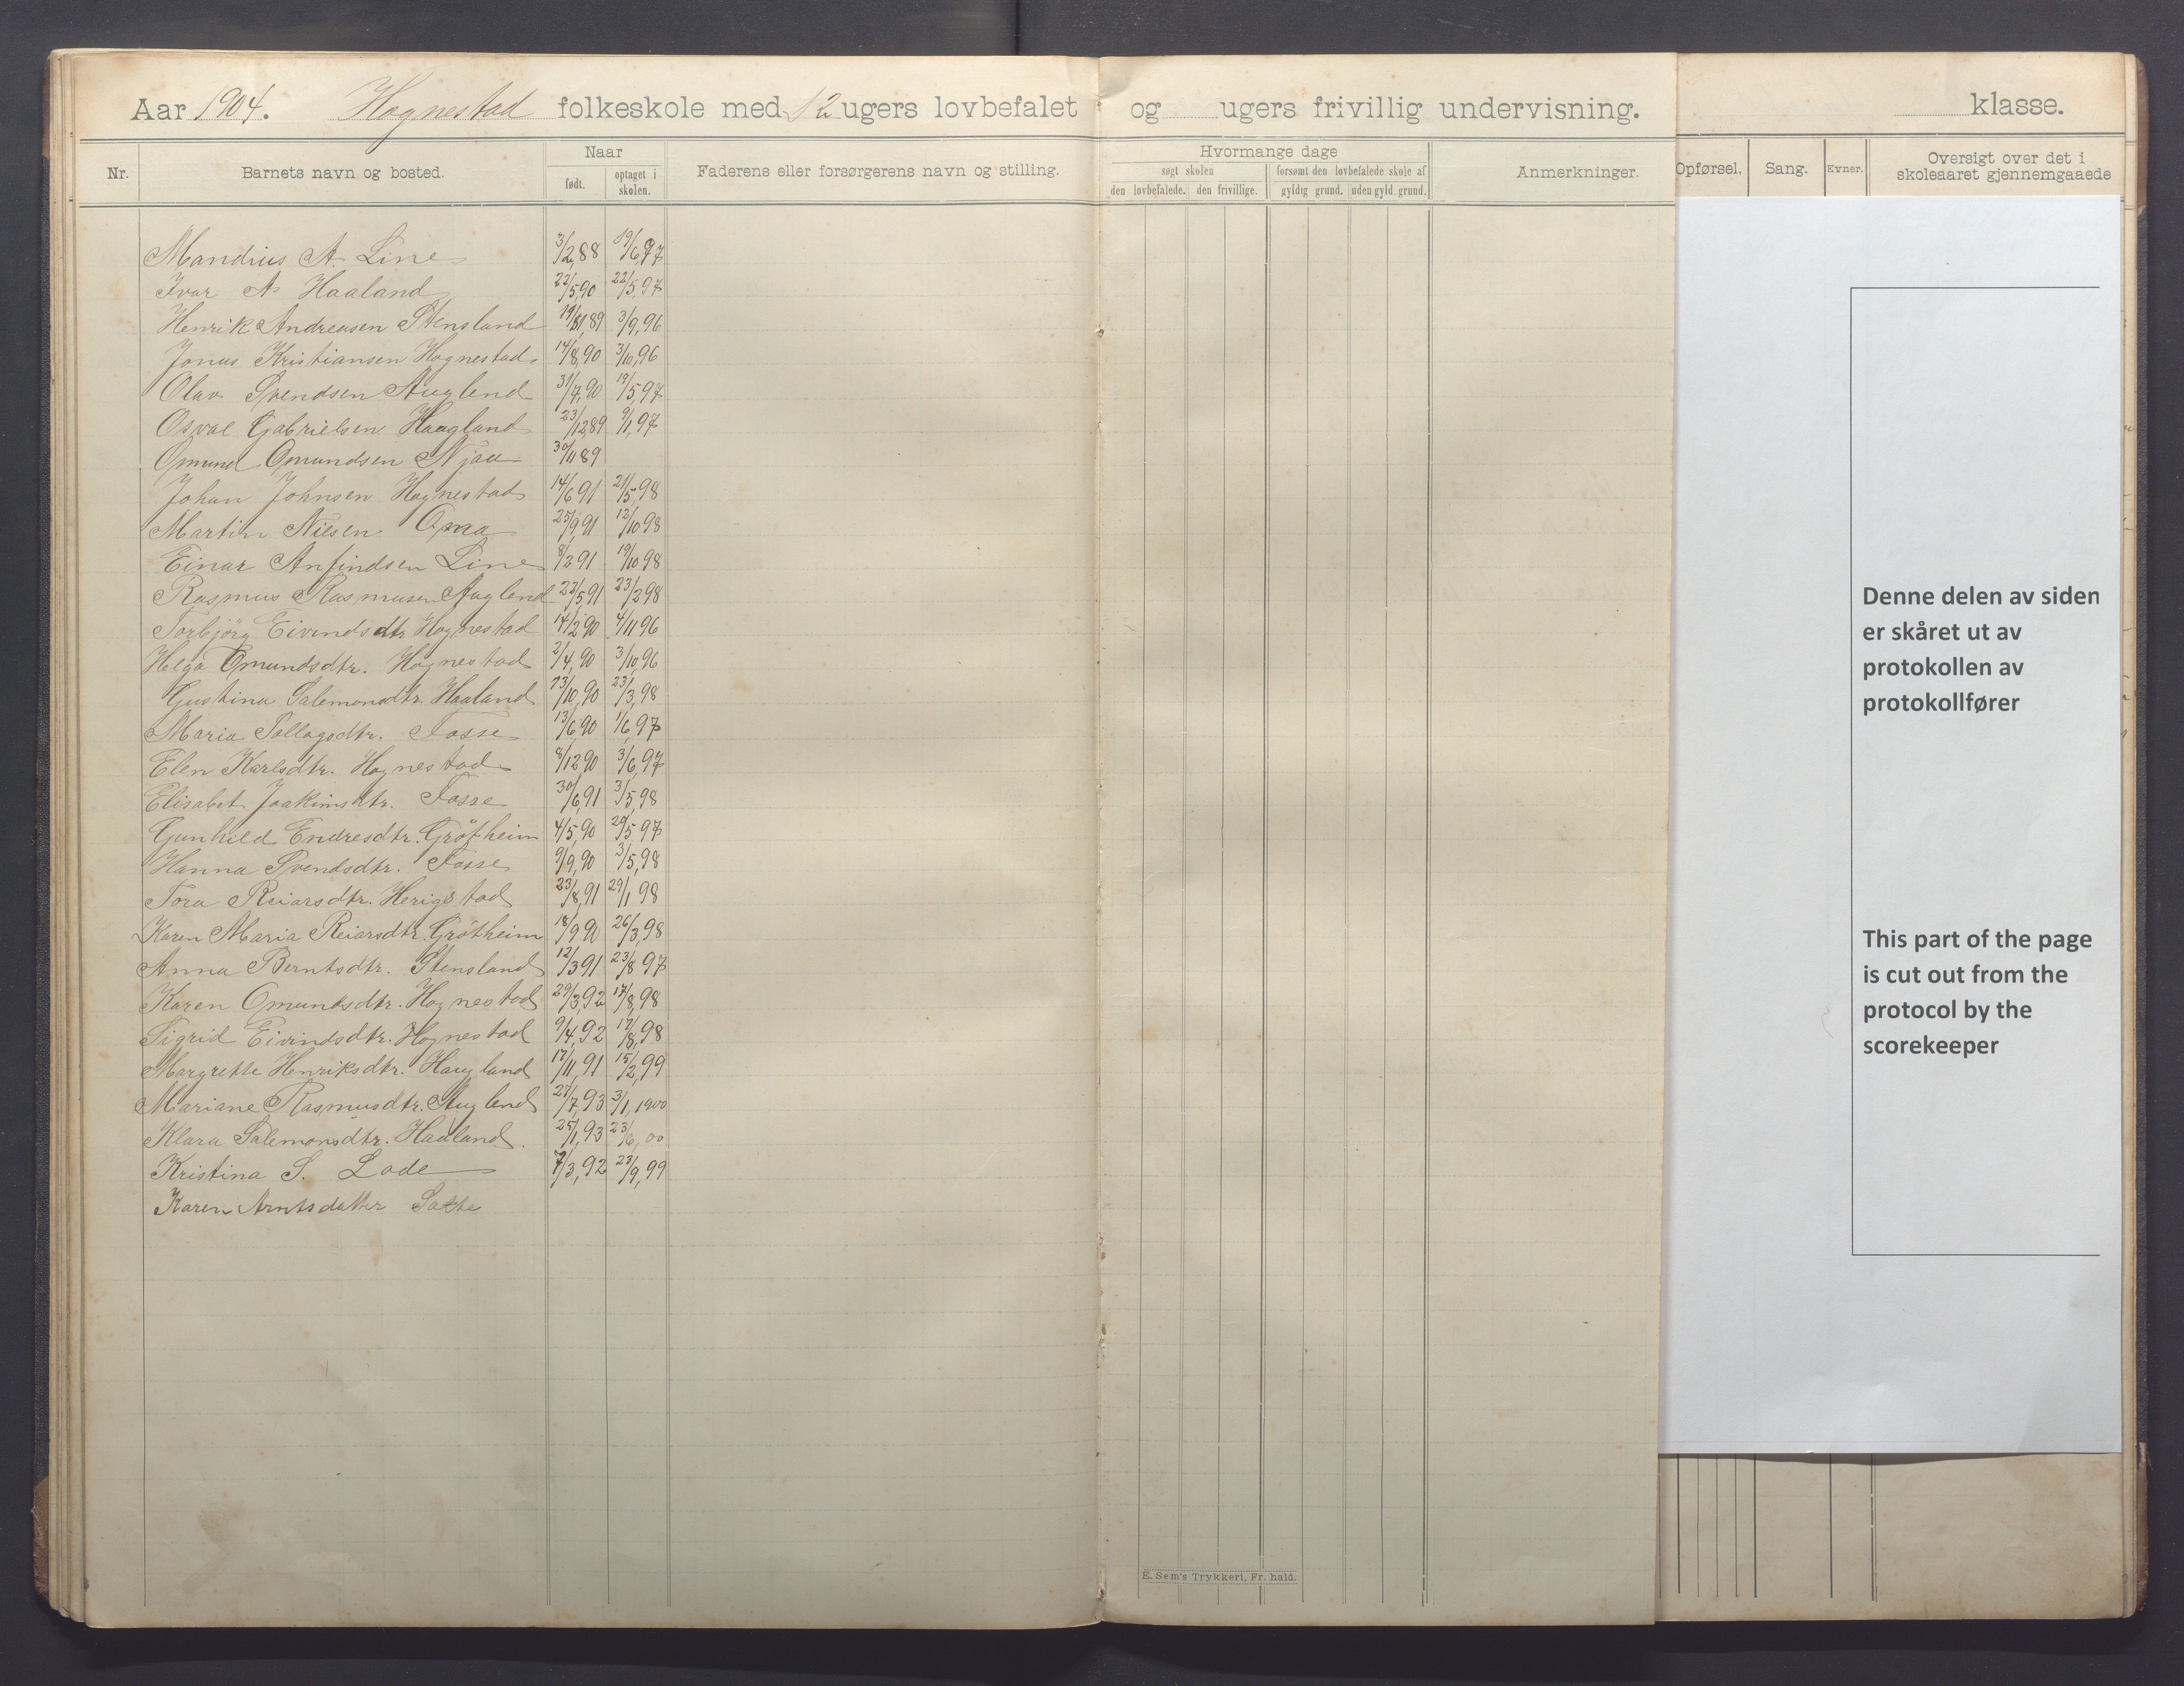 Aar 1904. Hognestad folkeskole med 12 ugers lovbefalet og ugers frivillig undervisning. klasse.
Nr. Barnets navn og bosted. Naar født. optaget i skolen. Faderens eller forsørgerens navn og stilling. Hvormange dage søgt skolen den lovbefalede. den frivillige. forsømt den lovbefalede skole af gyldig grund. uden gyld. grund. Anmerkninger. Opførsel, Sang. Evner. Oversigt over det i skoleaaret gjennemgaaede
Mandius A. Line 3/2,88 19/6,97
Ivar A. Haaland 22/5,90 22/5,97
Henrik Andreasen Stensland 19/11,89 3/9,96
Jonas Kristiansen Hognestad 14/8,90 3/10,96
Olav Svendsen Auglend 31/7,90 19/5,97
Osval Gabrielsen Haugland 23/12,89 9/1,97
Omund Omundsen Njaa 30/11 89
Johan Johnsen Hognestad 14/6 91 21/5,98
Martin Nilsen Oma 25/9,91 12/10 98
Einar Anfindsen Line 8/2 91 19/10 98
Rasmus Rasmusen Auglend 22/5 91 23/2 98
Torbjörg Eivendsdtr Hognestad 14/2 90 4/11 96
Helga Omundsdtr. Hognestad 2/4,90 3/10,96
Gustina Salemonsdtr. Haaland 13/10,90 23/3,98
Maria Tollagsdtr. Fosse 13/6 90 1/6,97
Elen Karlsdtr. Hognestad 8/12 90 3/6,97
Elisabet Joakimsdtr. Fosse 30/6,91 3/5,98
Gunhild Endresdtr. Grötheim 4/5,90 20/5 97
Hanna Svendsdtr. Fosse 9/9,90 3/5,98
Tora Reiarsdtr. Herigstad 23/8,91 29/1 98
Karen Maria Reiarsdtr. Grötheim 18/9 90 26/3,98
Anna Berntsdtr. Stensland 12/3 91 23/8 97
Karen Omundsdtr. Hognestad 29/3,92 17/8,98
Sigrid Eivindsdtr. Hognestad 9/4,92 17/8,98
Margrethe Henriksdtr. Haugland 17/11,91 15/2,99
Mariane Rasmusdtr. Auglend 27/7,93 3/1,1900
Klara Salemonsdtr. Haaland. 25/1,93 23/6,00
Kristina S. Lode 7/3,92 23/9,99
Karen Arntsdatter Satte
E. Sem's Trykkeri, Fr. hald.
Denne delen av siden
er skåret ut av
protokollen av
protokollfører
This part of the page
is cut out from the
protocol by the
scorekeeper